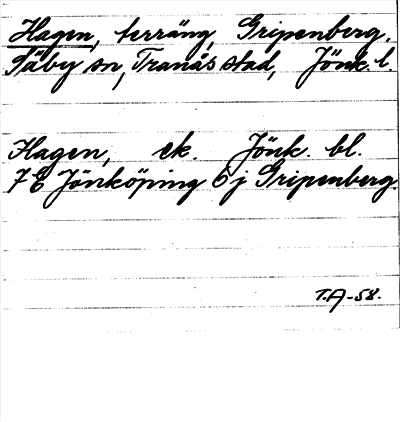 Hagen, terräng, Gripenberg,
Säby sn, Tranås stad, Jönk. l.
Hagen, ek. Jönk. bl.
7 E Jönköping 6 j Gripenberg.
T.A-58.